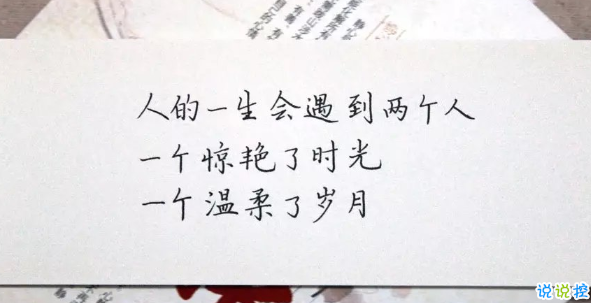 人的一生会遇到两个人
一个惊艳了时光
一个温柔了岁月
说说控